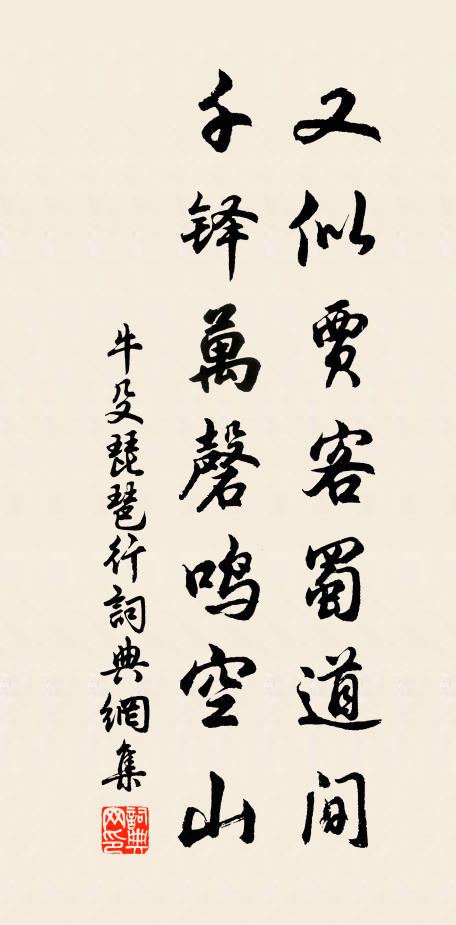 又似賈客蜀道间
千铎萬磬鳴空山
牛殳琵琶行詞典網集
詞典網印